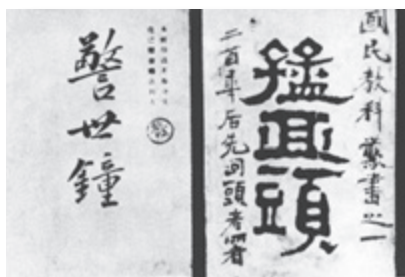 國民教科叢書之一
猛回頭
二百年后先回頭者署
警世鐘